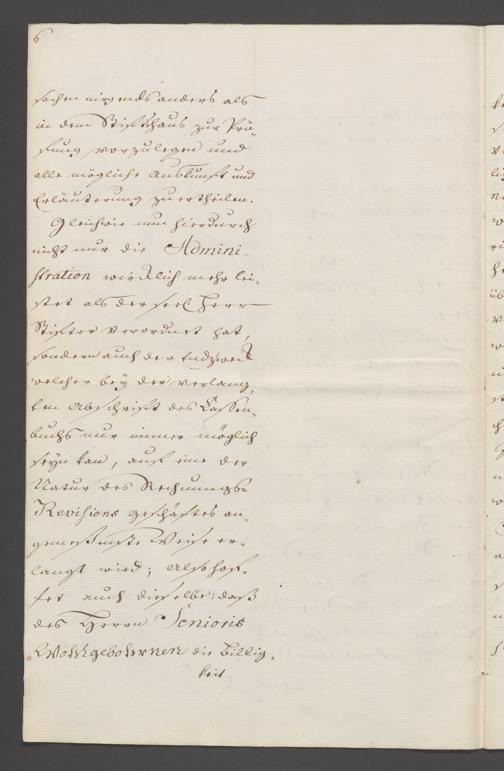 6
sachen nirgends anders als
in dem Stiftshaus zur Prü-
fung vorzulegen und
alle mögliche Auskunft und
Erläuterung zu ertheilen.
Gleichwie nun hierdurch
nicht nur die Admini-
stration würcklich mehr lei-
stet als der seel. Herr
Stifter verordnet hat,
sondern auch der Endzweck
welcher bey der verlang-
ten Abschrift des Cassen-
buchs nur immer möglich
seyn kan, auf eine der
Natur des Rechnungs-
Revisions geschäftes an-
gemessenste Weise er-
langt wird; Also hof-
fet auch dieselbe: daß
des Herrn Senioris
Wohlgebohrnen die Billig-
keit